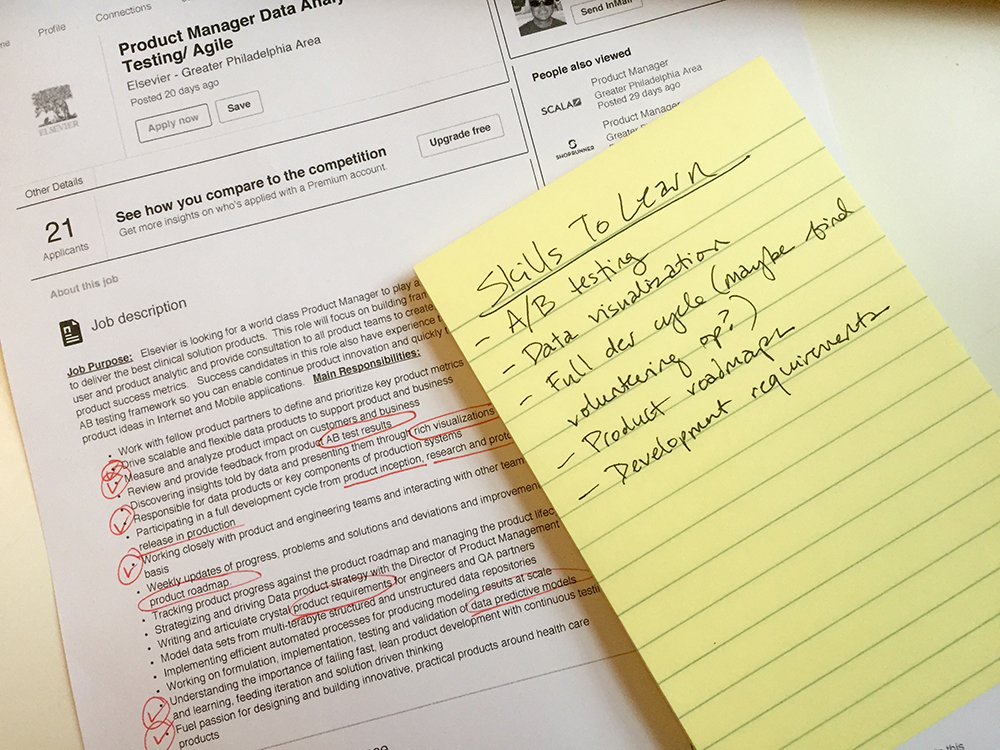 Profile
Connections
Product Manager Data Analy
Testing/ Agile
Elsevier - Greater Philadelphia Area
Posted 20 days ago
Apply now
Save
ELSEVIER
Send InMail
People also viewed
SCALA
Product Manager
Greater Philadelphia Area
Posted 29 days ago
SHOPRUNNER
Product Manager
Other Details
21
Applicants
See how you compare to the competition
Get more insights on who's applied with a Premium account.
Upgrade free
About this job
Job description
Job Purpose: Elsevier is looking for a world class Product Manager to play a
to deliver the best clinical solution products. This role will focus on building fram
user and product analytic and provide consultation to all product teams to create
product success metrics. Success candidates in this role also have experience
AB testing framework so you can enable continue product innovation and quickly
product ideas in Internet and Mobile applications. Main Responsibilities:
• Work with fellow product partners to define and prioritize key product metrics
• Drive scalable and flexible data products to support product and business
• Measure and analyze product impact on customers and business
• Review and provide feedback from product AB test results
• Discovering insights told by data and presenting them through rich visualizations
• Responsible for data products or key components of production systems
• Participating in a full development cycle from product inception, research and proto
release in production
• Working closely with product and engineering teams and interacting with other team
basis
• Weekly updates of progress, problems and solutions and deviations and improvement
product roadmap.
• Tracking product progress against the product roadmap and managing the product lifec
• Strategizing and driving Data product strategy with the Director of Product Management
• Writing and articulate crystal product requirements for engineers and QA partners
• Model data sets from multi-terabyte structured and unstructured data repositories
• Implementing efficient automated processes for producing modeling results at scale
• Working on formulation, implementation, testing and validation of data predictive models
• Understanding the importance of failing fast, lean product development with continuous testi
and learning, feeding iteration and solution driven thinking
• Fuel passion for designing and building innovative, practical products around health care
products
Skills To Learn
- A/B testing
- Data visualization
- Full dev cycle (maybe find
volunteering op?)
- Product roadmaps
- Development requirements